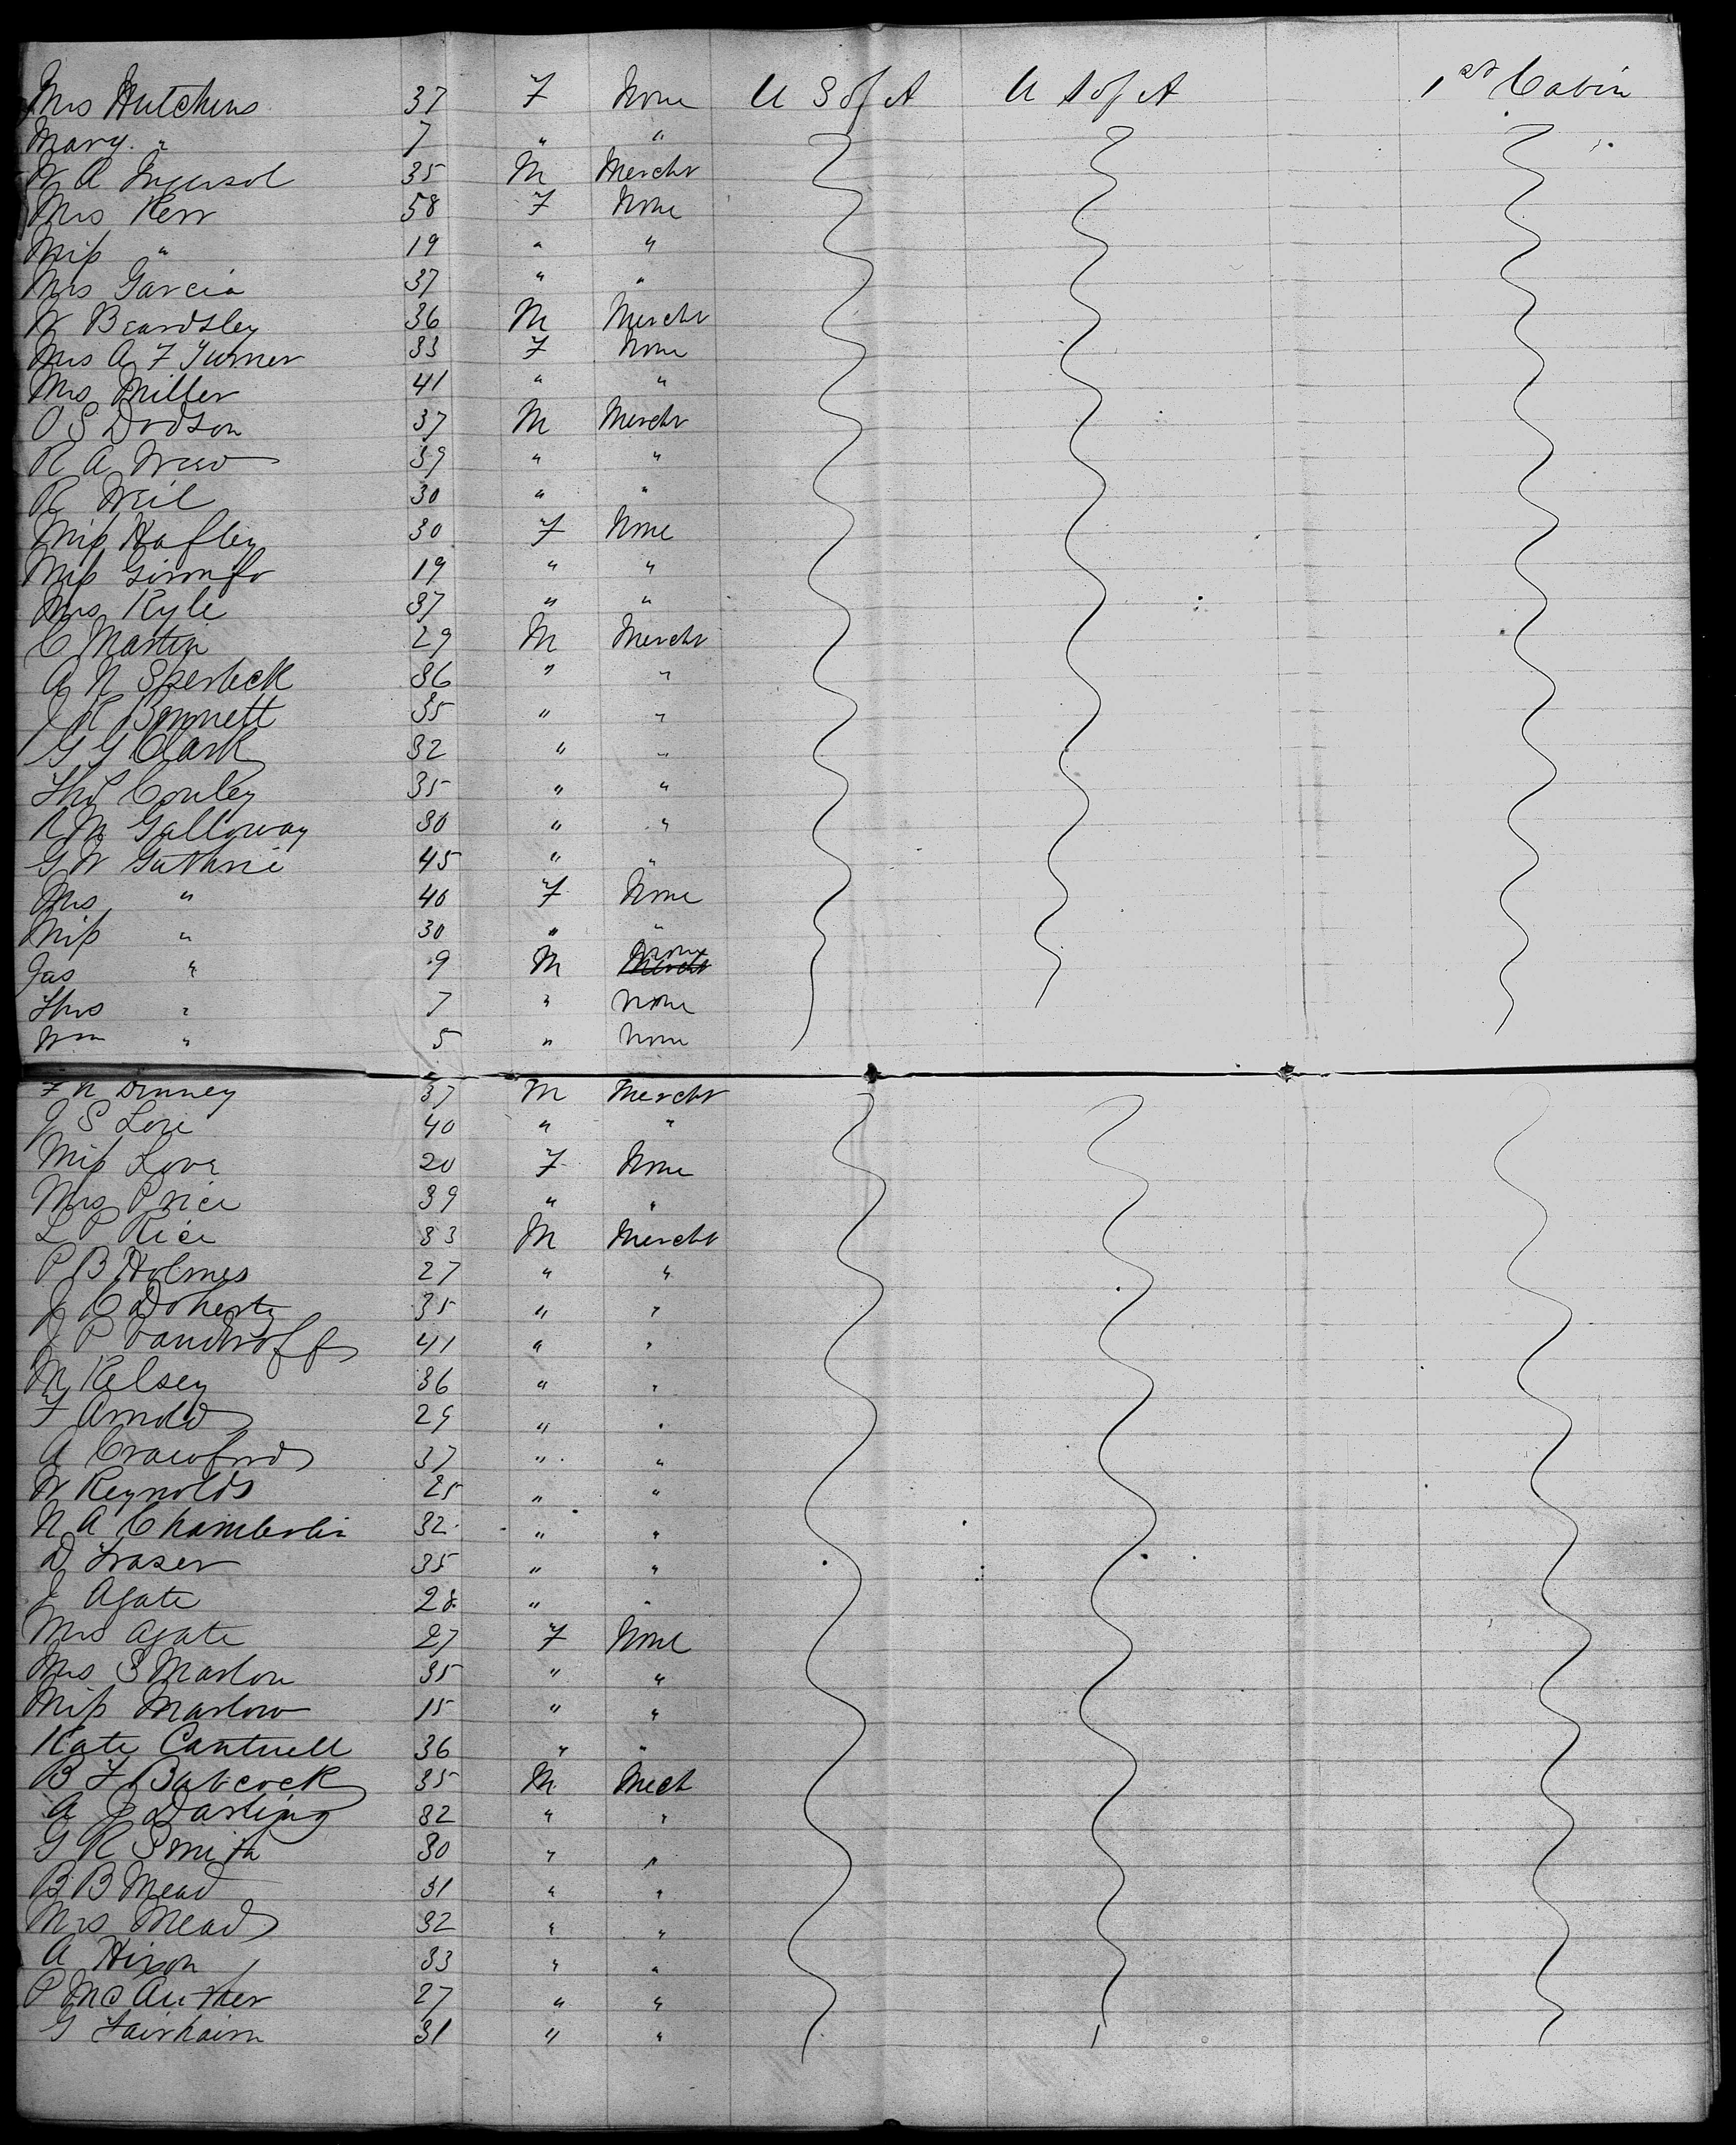 Mrs Hutchins 37 F None U S of A U S of A 1st Cabin
Mary " 7 " "
W A Ingersol 35 M Mercht
Mrs Kerr 58 F None
Miss " 19 " "
Mrs Garcia 37 " "
W Beardsley 36 M Mercht
Mrs A F Turner 33 F None
Mrs Miller 41 " "
O S Dodson 37 M Mercht
R A 39 " "
R Weil 30 " "
Miss Hafley 30 F None
Miss 19 " "
Mrs Kyle 37 " "
C Martin 29 M Mercht
A N Sperbeck 36 " "
J R Bennett 35 " "
G G Clark 32 " "
Thos Conley 35 " "
R M Galloway 30 " "
G W Guthrie 45 " "
Mrs " 40 F None
Miss " 30 " "
Jas " 9 M None Mercht
Thos " 7 " None
Wm " 5 " None
F N Denney 37 M Mercht
J S Love 40 " "
Miss Love 20 F None
Mrs Price 39 " "
L P Rice 33 M Mercht
P B Holmes 27 " "
J C Doherty 35 " "
J P 41 " "
M Kelsey 36 " "
F Arnold 29 " "
A Crawford 37 " "
W Reynolds 25 " "
N A Chamberlin 32 " "
D Fraser 35 " "
J Agate 28 " "
Mrs Agate 27 F None
Mrs S Marlow 35 " "
Miss Marlow 15 " "
Kate Cantwell 36 " "
B F Babcock 35 M Mecht
A J Darling 32 " "
G R Smith 30 " "
B B Mead 31 " "
Mrs Mead 32 " "
A Hixon 33 " "
P McAuther 27 " "
G Fairhairn 31 " "